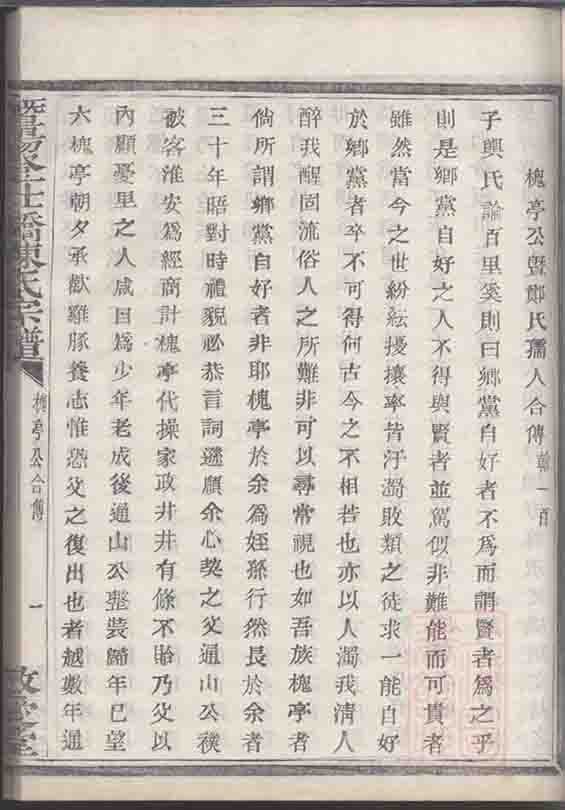 槐亭公暨鄭氏孺人合傳
子輿氏論百里奚則曰鄉黨自好者不爲而謂賢者爲之乎
則是鄉黨自好之人不得與賢者並駕似非難能而可貴者
雖然當今之世紛紜擾攘率皆汙濁敗類之徒求一能自好
於鄉黨者卒不可得何古今之不相若也亦以人濁我清人
醉我醒固流俗人之所難非可以尋常視也如吾族槐亭者
倘所謂鄉黨自好者非耶槐亭於余爲姪孫行然長於余者
三十年晤對時禮貌必恭言詞遜順余心契之父通山公襆
被客淮安爲經商計槐亭代操家政井井有條不貽乃父以
內顧憂里之人咸曰爲少年老成後通山公整裝歸年已望
六槐亭朝夕承歡雞豚養志惟恐父之復出也者越數年通
暨陽
橋陳氏宗譜
槐亭公合傳
一